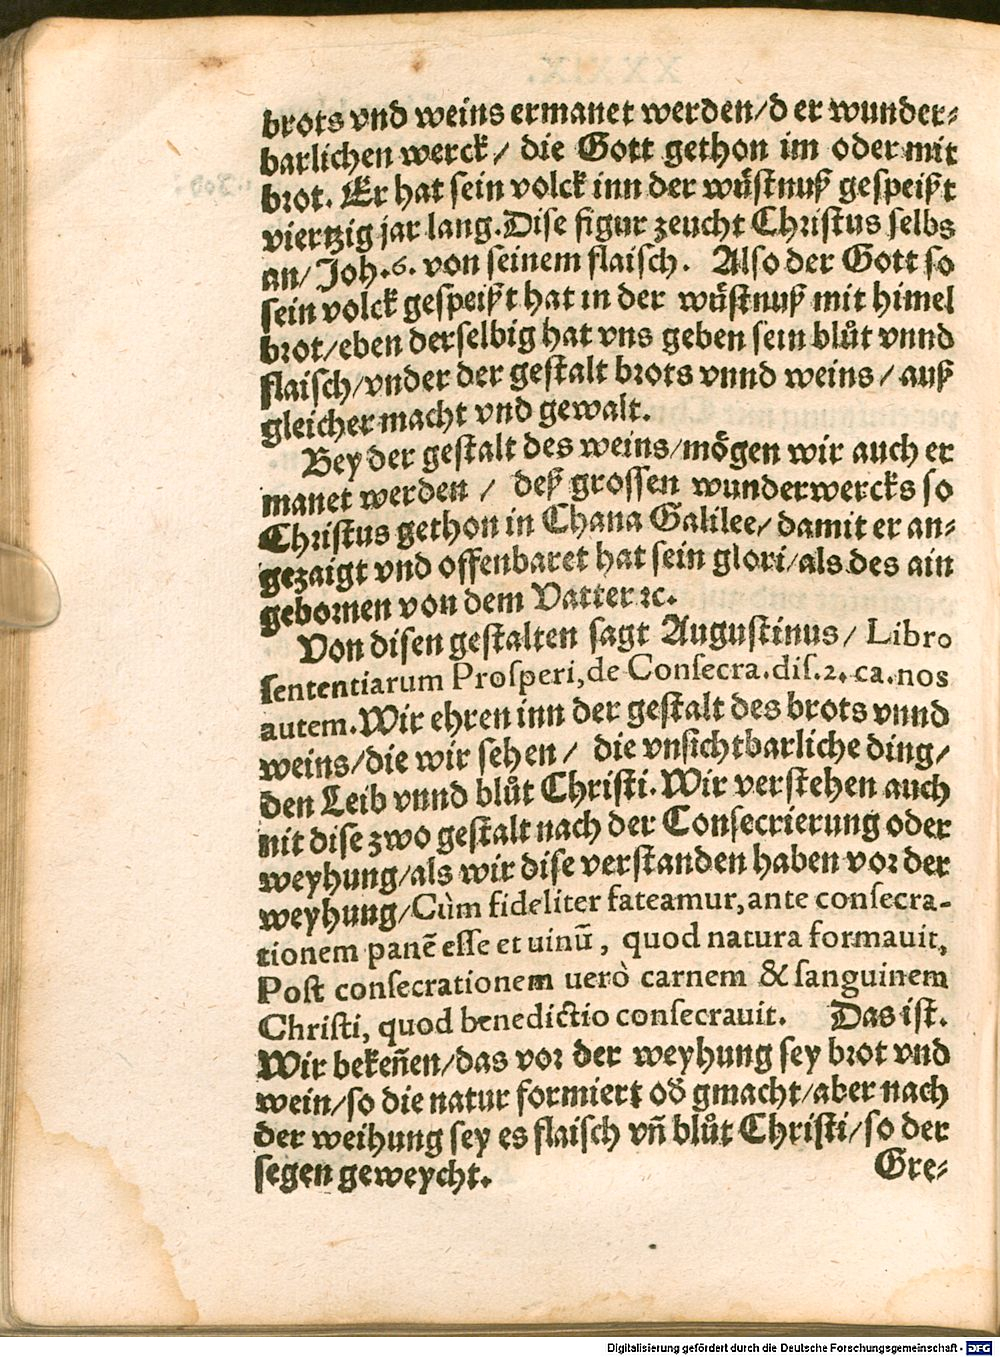 brots vnd weins ermanet werden/d er wunder-
barlichen werck/ die Gott gethon im oder mit
brot. Er hat sein volck inn der wüstnuß gespeißt
viertzig jar lang. Dise figur zeucht Christus selbs
an/ Joh.6. von seinem flaisch. Also der Gott so
sein volck gespeißt hat in der wüstnuß mit himel
brot/eben derselbig hat vns geben sein blůt vnnd
flaisch/vnder der gestalt brots vnnd weins/ auß
gleicher macht vnd gewalt.
Bey der gestalt des weins/mögen wir auch er
manet werden / deß grossen wunderwercks so
Christus gethon in Chana Galilee/ damit er an-
gezaigt vnd offenbaret hat sein glori/als des ain
gebornen von dem Vatter ꝛc.
Von disen gestalten sagt Augustinus/ Libro
sententiarum Prosperi, de Consecra. dis. 2. ca. nos
autem. Wir ehren inn der gestalt des brots vnnd
weins/die wir sehen/ die vnsichtbarliche ding/
den Leib vnnd blůt Christi. Wir verstehen auch
nit dise zwo gestalt nach der Consecrierung oder
weyhung/als wir dise verstanden haben vor der
weyhung/Cùm fideliter fateamur, ante consecra-
tionem panē esse et uinū, quod natura formauit,
Post consecrationem uerò carnem & sanguinem
Christi, quod benedictio consecrauit. Das ist.
Wir bekeñen/das vor der weyhung sey brot vnd
wein/so die natur formiert od̄ gmacht/aber nach
der weihung sey es flaisch vñ blůt Christi/so der
segen geweycht.
Gre-
Digitalisierung gefördert durch die Deutsche Forschungsgemeinschaft - DFG